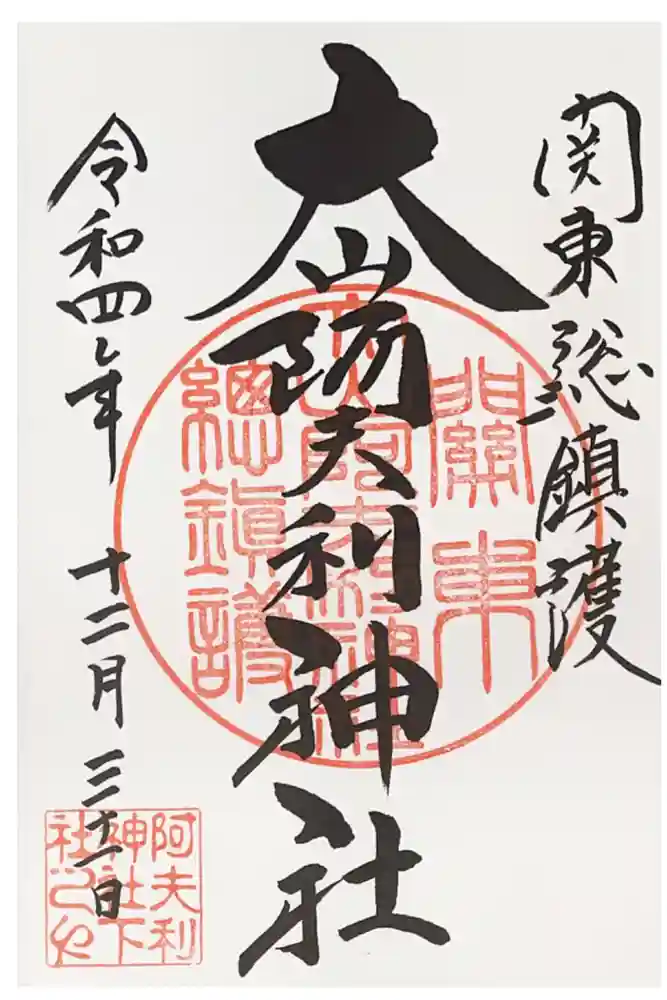 関東総鎮護
大山阿夫利神社
令和四年 十二月 三十一日
關東
總鎮護
阿夫利
神社下
社之印